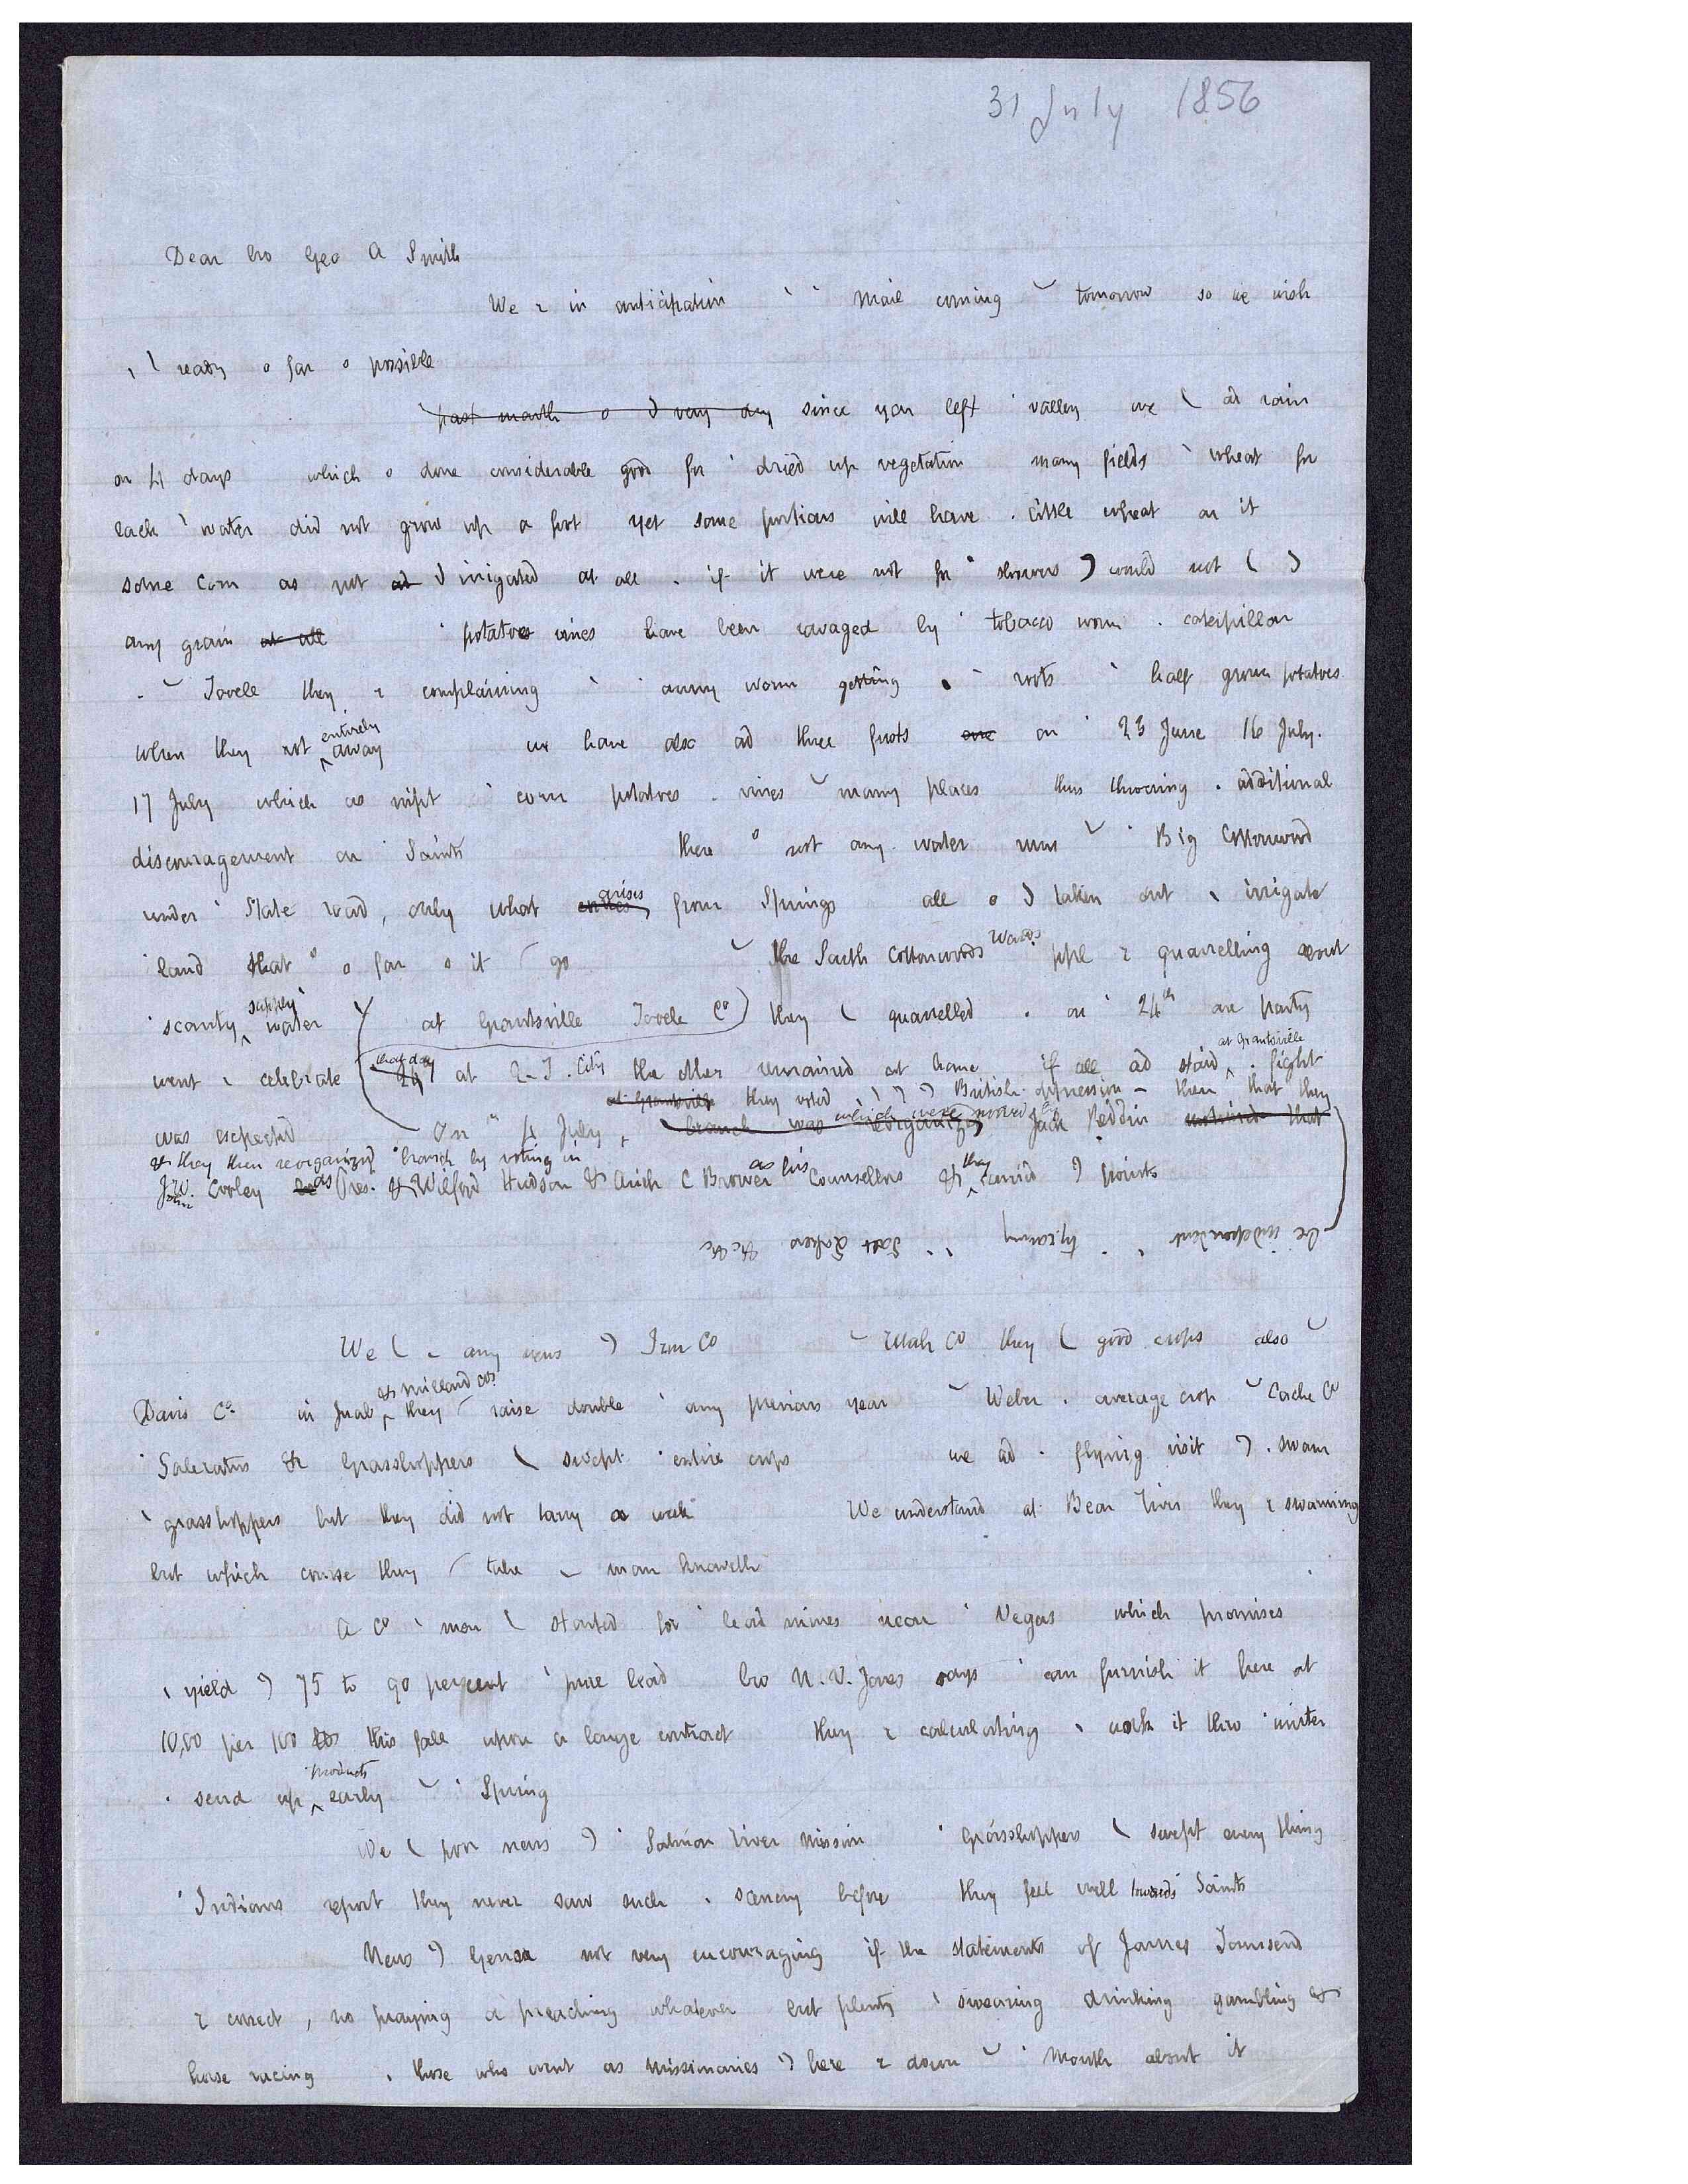 31 July 1856
Dear bro Geo A Smith
We r in anticipation mail coming tomorrow so we wish
ready far possible
past month very dry since you left valley we ad rain
on 4 days which done considerable good for dried up vegetation many fields wheat for
lack water did not grow up a foot yet some portions will have little wheat on it
some corn as not ad irrigated at all if it were not for showers would not
any grain at all potatoes vines have been ravaged by tobacco worm caterpillar
Tooele they r complaining army worm getting roots half grown potatoes
when they rot entirely away we have also ad three frosts one on 23 June 16 July
17 July which as nipt corn potatoes vines many places thus throwing additional
discouragement on Saints there not any water runs Big Cottonwood
under State road, only what arises from Springs all taken out irrigate
land that far it go the South Cottonwoods Wards ppl r quarrelling about
scanty supply water at Grantsville Tooele Co they quarrelled on 24th one party
went celebrate that day 24 at City the other remained at home if all ad staid at Grantsville fight
was expected On 4 July branch was reorganized at Grantsville they voted British oppression then that they which were moved by Jack Reddin motioned that
& they then reorganized branch by voting in
J.W. Cooley as Pres. & Wilford Hudson & Arich C Brower as his Counsellors & they carried points
be independent tyranny Salt Lakers &c &c
We any news Iron Co Utah Co they good crops also
Davis Co. in Juab & Millard cos. they raise double any previous year Weber average crop Cache Co
Saleratus & Grasshoppers swept entire crops we ad flying visit swarm
grasshoppers but they did not tarry a week We understand at Bear River they r swarming
but which course they take man knoweth
A Co men started for lead mines near Vegas which promises
yield 75 to 90 percent pure lead bro N. V. Jones says can furnish it here at
10,00 per 100 lbs this fall upon a large contract they r calculating work it thro winter
send up products early Spring
We poor news Salmon River Mission Grasshoppers swept every thing
Indians report they never saw such scenery before they feel well towards Saints
News Genoa not very encouraging if the statements of James Townsend
r correct, no praying a preaching whatever but plenty swearing drinking gambling &
horse racing those who went as missionaries here r down mouth about it